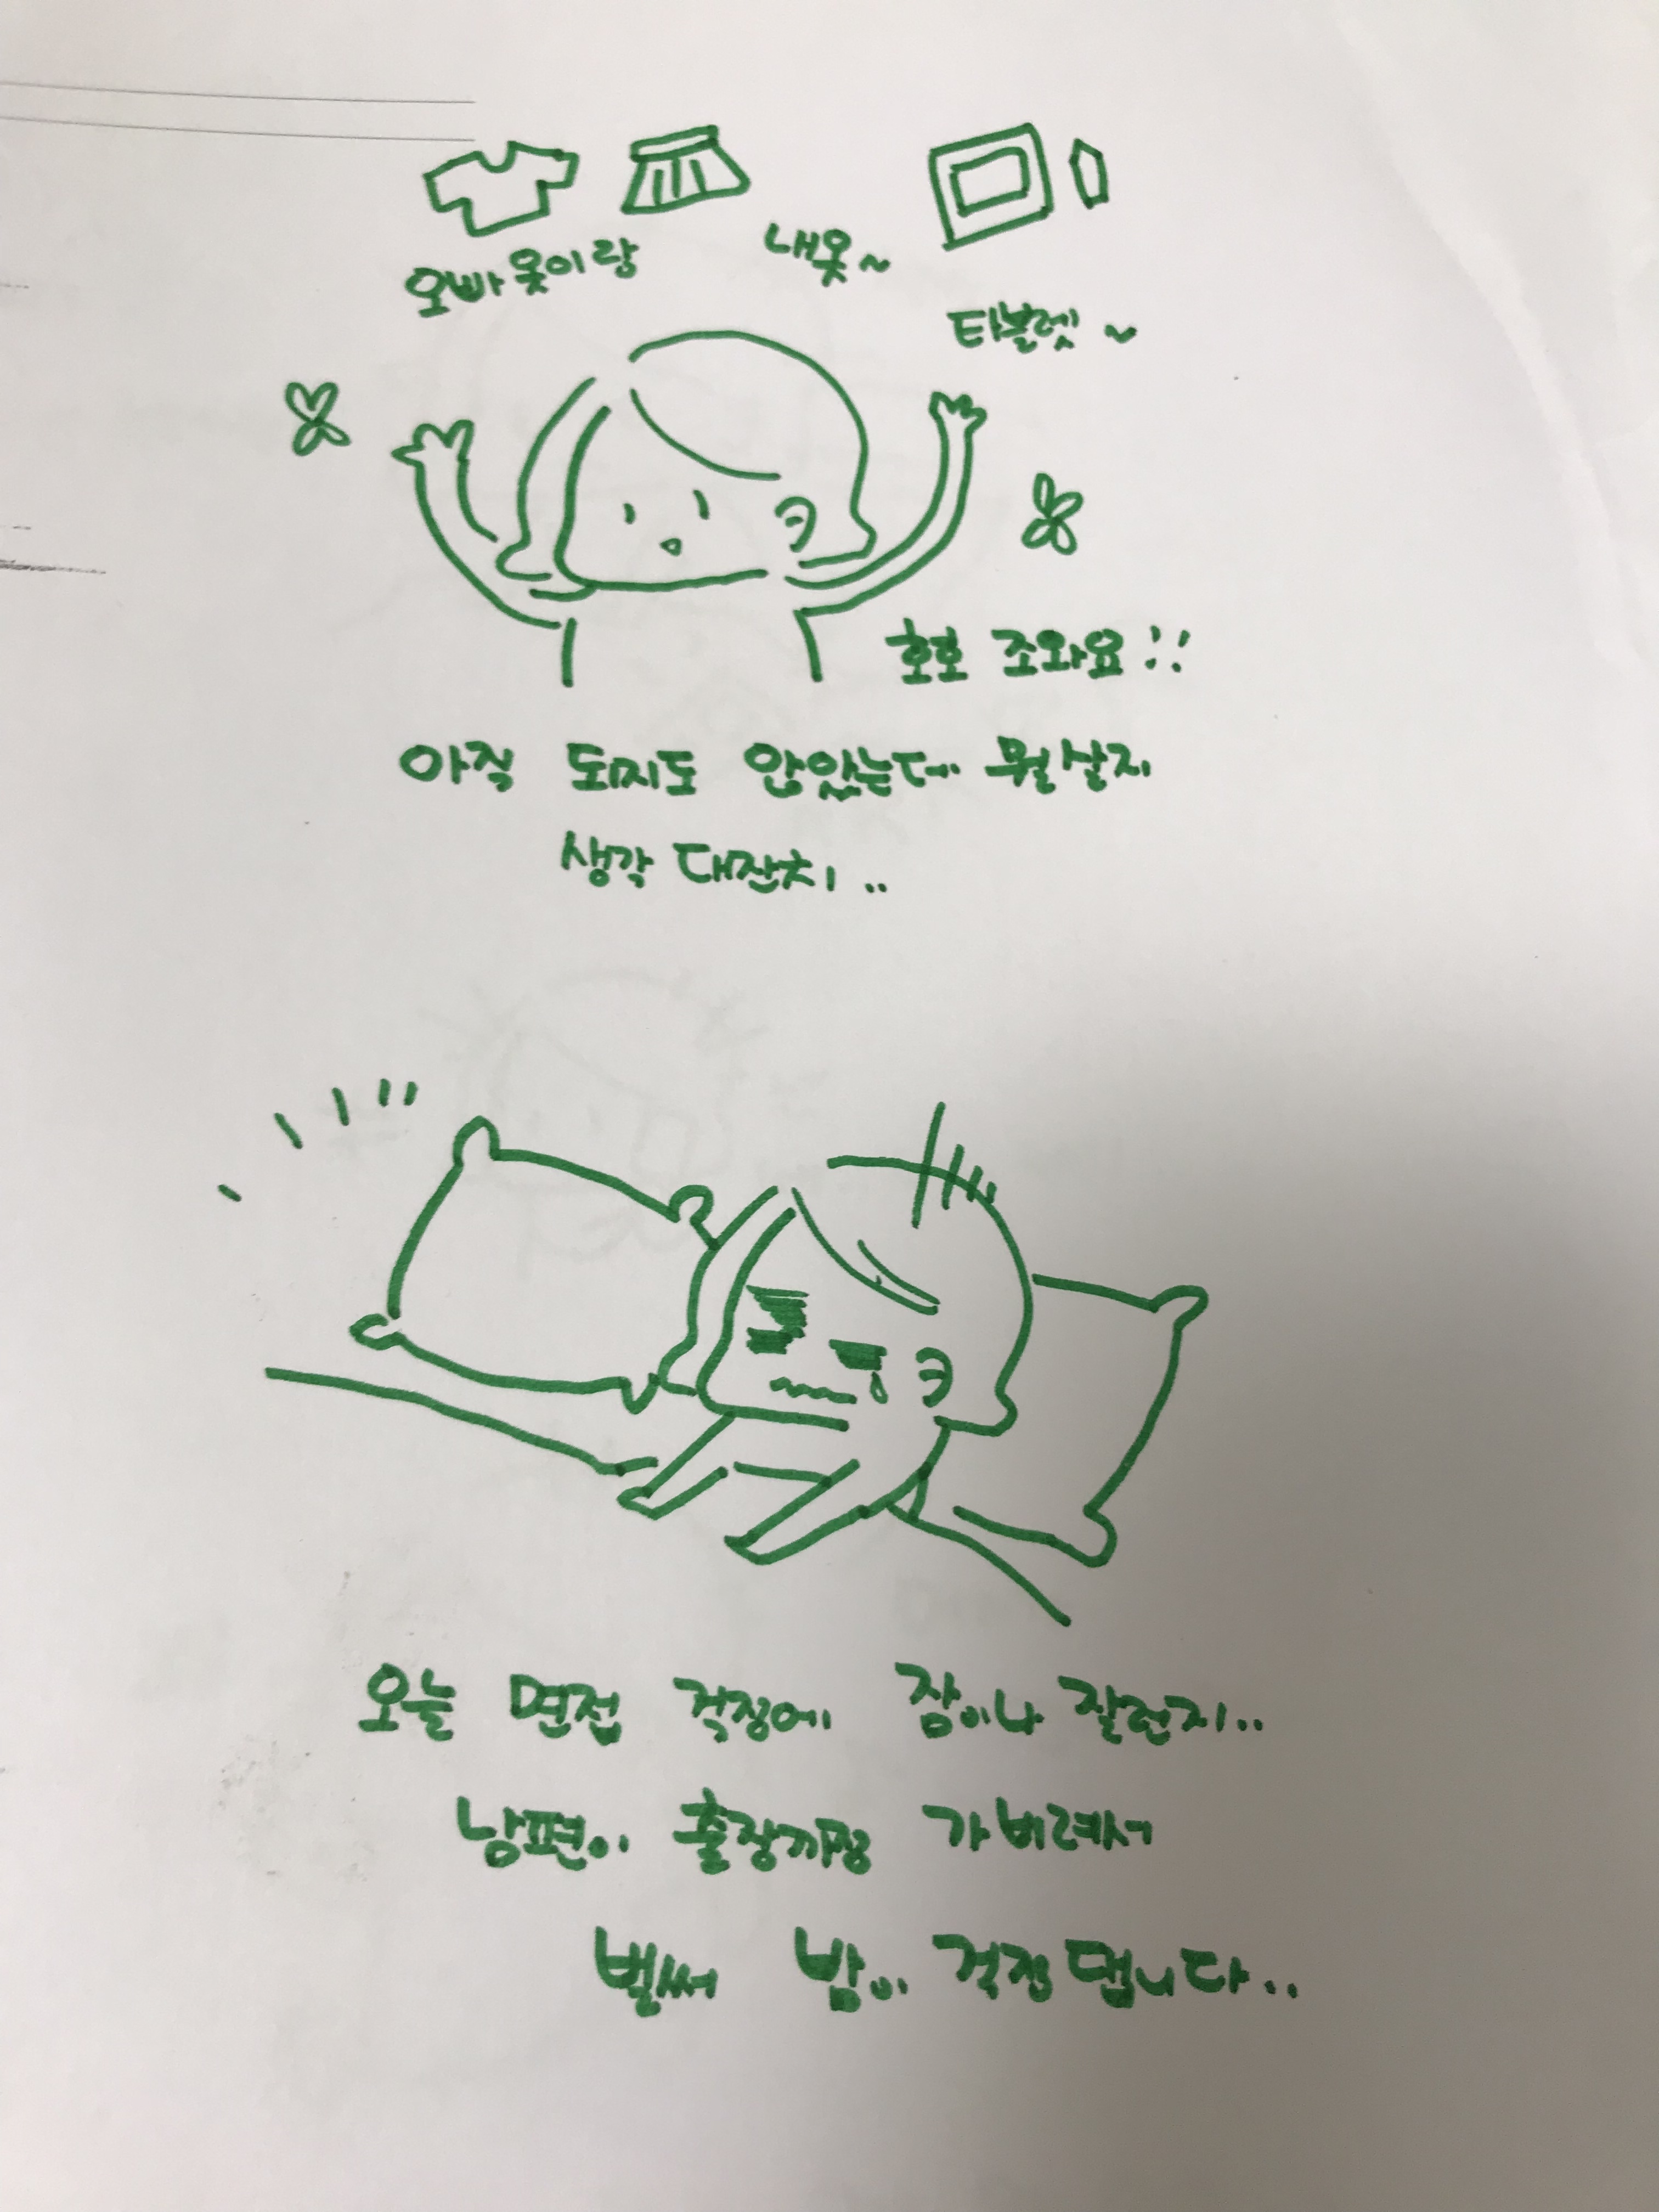 오빠 옷이랑
내옷~
타블렛~
호호 조와요!!
아직 되지도 않았는데 뭘살지
생각 대잔치..
오늘 면접 걱정에 잠이나 잘런지..
남편이 출장까정 가버려서
벌써 밤이 걱정 됍니다..